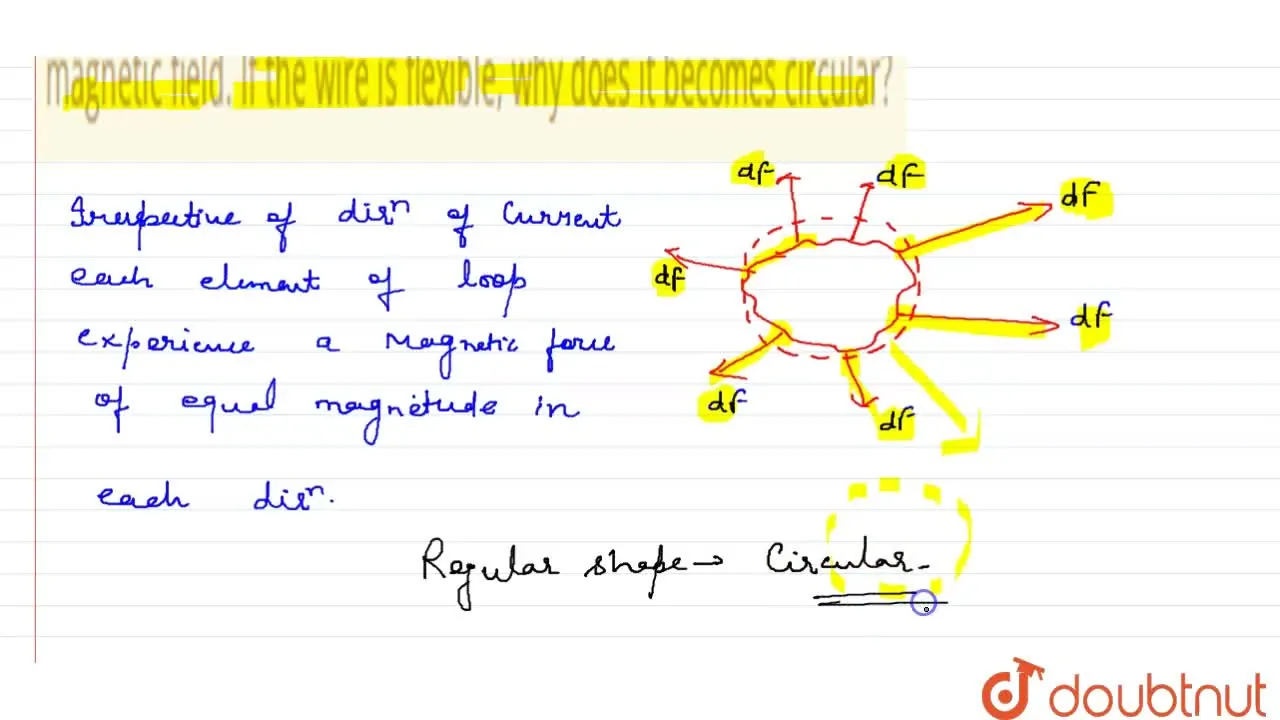 magnetic field. If the wire is flexible, why does it becomes circular?
df
df
df
Irrespective of dirⁿ of Current
each element of loop
df
experience a magnetic force
df
of equal magnitude in
df
df
each dirⁿ.
Regular shape → Circular
doubtnut